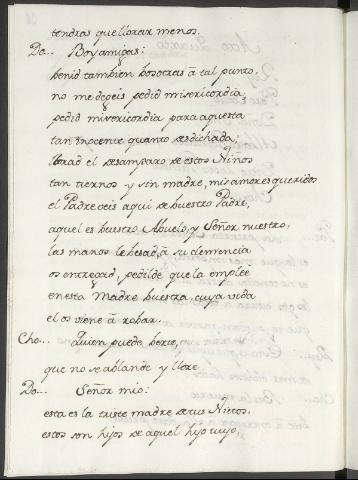 tendras que llorar menos.
Do... Boy amigas:
benid tambien bosotras â tal punto,
no me degeis pedid misericordia,
pedid misericordia para aquesta
tan inocente quanto desdichada;
llorad el desamparo de estos Niños
tan tiernos y sin madre, mis amores queridos
el Padre veis aqui de buestro Padre,
aquel es buestro Abuelo, y Señor nuestro,
las manos le besad, â su clemencia
os entregad, pedilde que la emplèe
en esta Madre buestra, cuya vida
el os viene â robar.
Cho... Quien puede berte,
que no se ablande y llore.
Do... Señor mio:
esta es la triste madre de tus Nietos,
estos son hijos de aquel hijo tuyo,